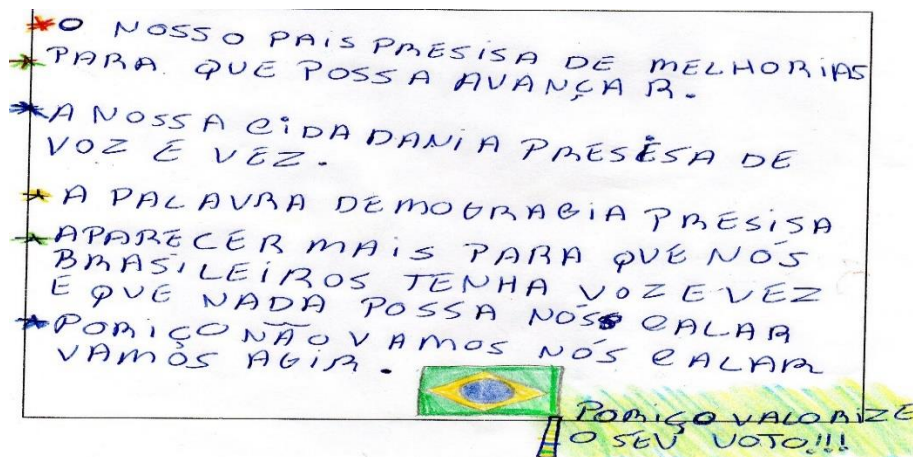 O NOSSO PAIS PRESISA DE MELHORIAS
PARA QUE POSSA AVANÇAR.
A NOSSA CIDADANIA PRESESA DE
VOZ E VEZ.
A PALAVRA DEMOGRACIA PRESISA
APARECER MAIS PARA QUE NÓS
BRASILEIROS TENHA VOZ E VEZ
E QUE NADA POSSA NÓS CALAR
PORIÇO NÃO VAMOS NÓS CALAR
VAMOS AGIR.
PORIÇO VALORIZE
O SEU VOTO!!!